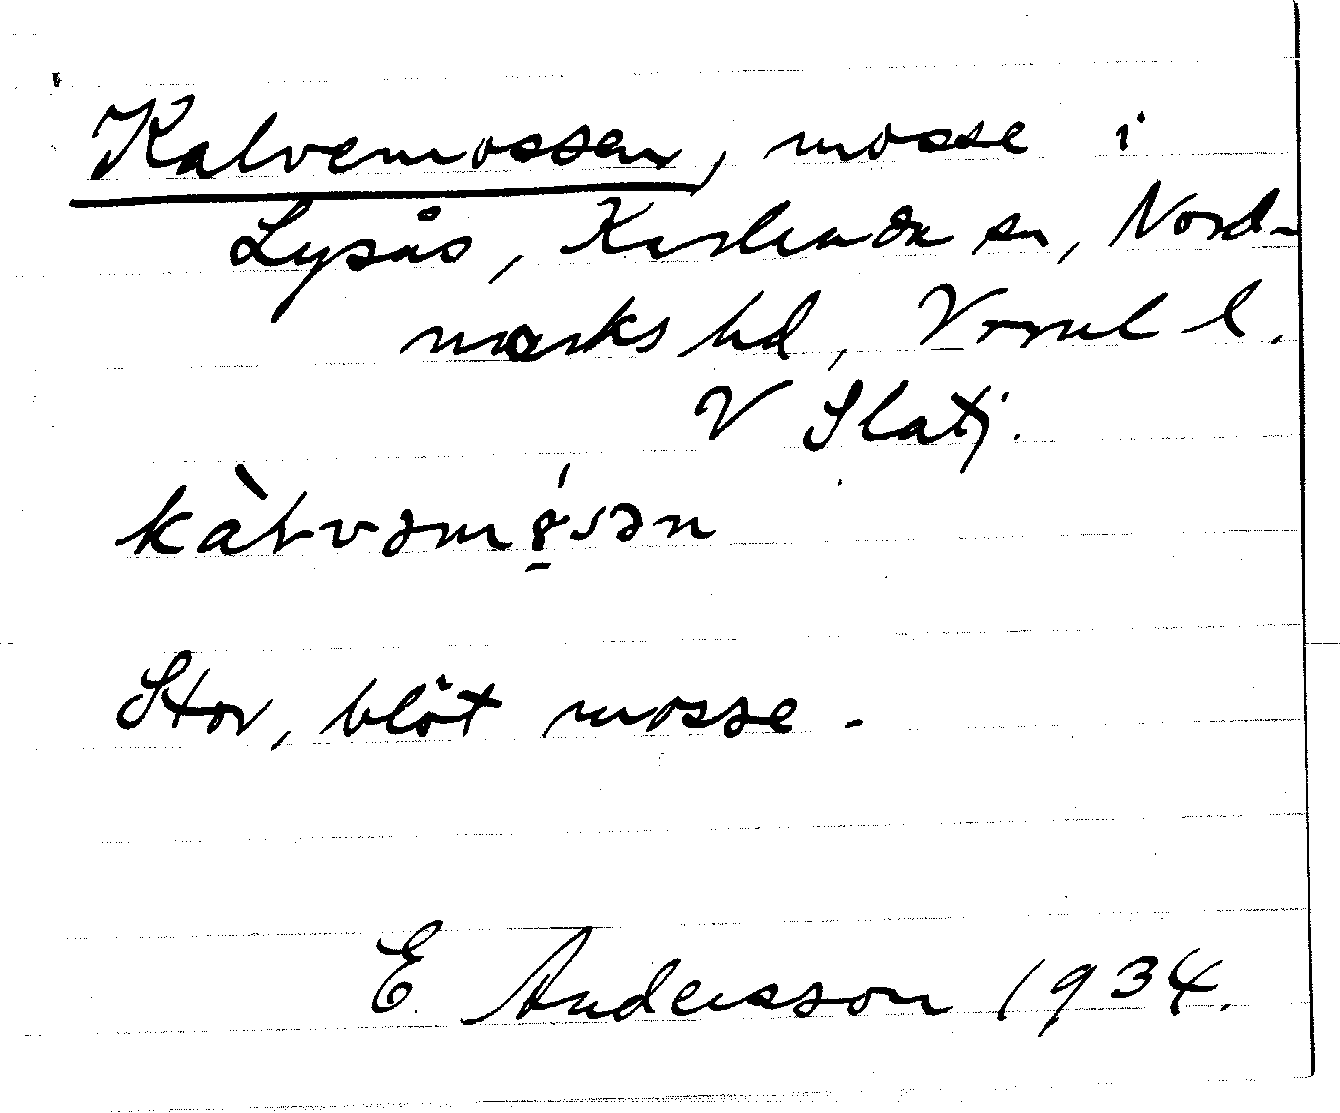 Kalvemossen, mosse i
Lysås, Karlanda sn, Nord-
marks hd, Vrml l.
V Slätj.
Stor, blöt mosse.
E Andersson 1934.